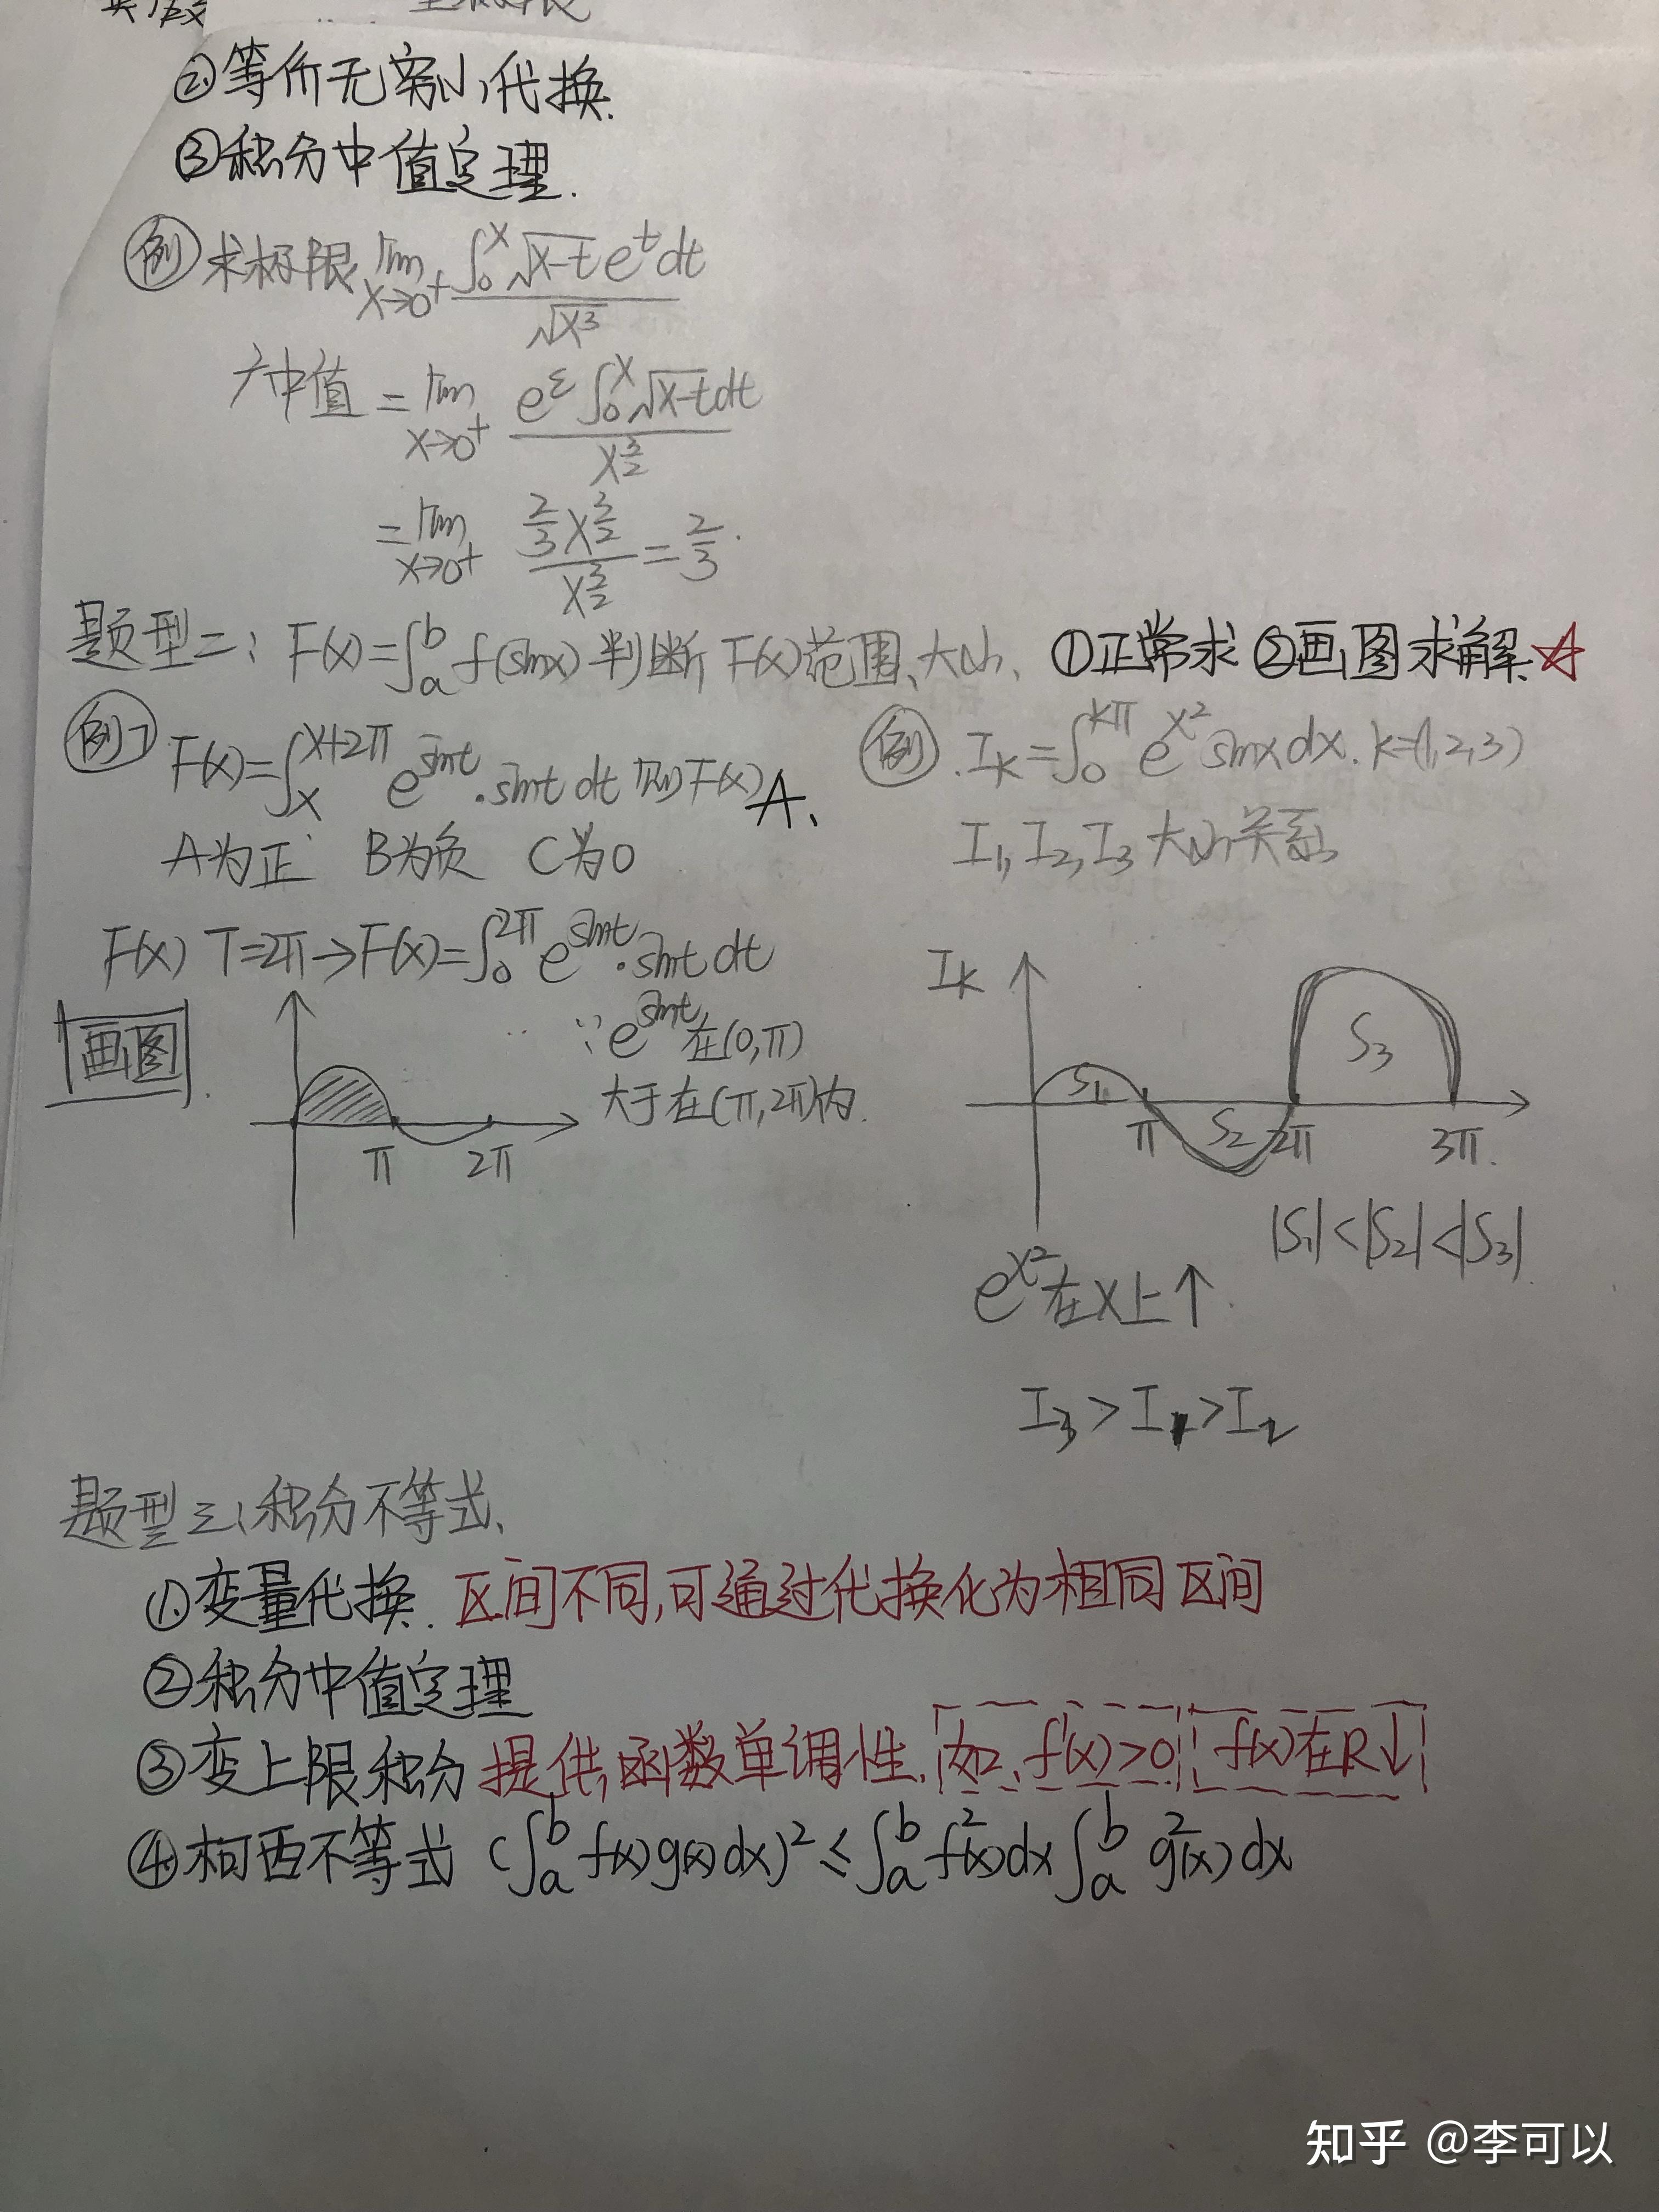 ②等价无穷小代换.
③积分中值定理.
例 求极限 lim x→0⁺ ∫₀ˣ √(x-t) eᵗ dt / √(x³)
广中值 = lim x→0⁺ e^ξ ∫₀ˣ √(x-t) dt / x^(3/2)
= lim x→0⁺ (2/3)x^(3/2) / x^(3/2) = 2/3.
题型二: F(x)=∫ₐᵇ f(sinx) 判断 F(x)范围、大小、 ①正常求 ②画图求解 ☆
例1 F(x)=∫ₓ^(x+2π) e^(sint)·sint dt 则F(x) A、
A为正 B为负 C为0
F(x) T=2π→F(x)=∫₀^(2π) e^(sint)·sint dt
画图.
∵ e^(sint) 在(0,π)
大于在(π,2π)内.
π 2π
例 . I_k=∫₀^(kπ) e^(x²) sinx dx. k=(1,2,3)
I₁, I₂, I₃ 大小关系
I_k
S₁ S₂ S₃
π 2π 3π.
|S₁|<|S₂|<|S₃|
e^(x²) 在x上↑.
I₃>I₁>I₂
题型三、积分不等式、
①变量代换. 区间不同,可通过代换化为相同区间
②积分中值定理
③变上限积分 提供函数单调性. 如、f'(x)>0 f(x)在R↓
④柯西不等式 (∫ₐᵇ f(x)g(x)dx)² ≤ ∫ₐᵇ f²(x)dx ∫ₐᵇ g²(x)dx
知乎 @李可以